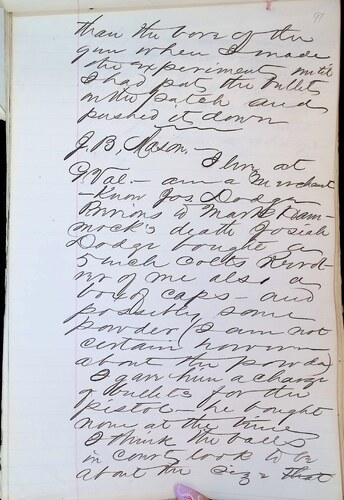 91
than the bore of the
gun when I made
the experiment until
I had put the bullets
on the patch and
pushed it down
J. B. Mason. — I live at
G. Val. — am a Merchant
— Know Jos. Dodge
Previous to Mark Ham-
mock's death Josiah
Dodge bought a
5 inch Colts Revol-
ver of me also a
box of caps — and
possibly some
powder (I am not
certain however
about the powder)
I gave him a charge
of bullets for the
pistol — he bought
none at the time
I think the balls
in court look to be
about the size that